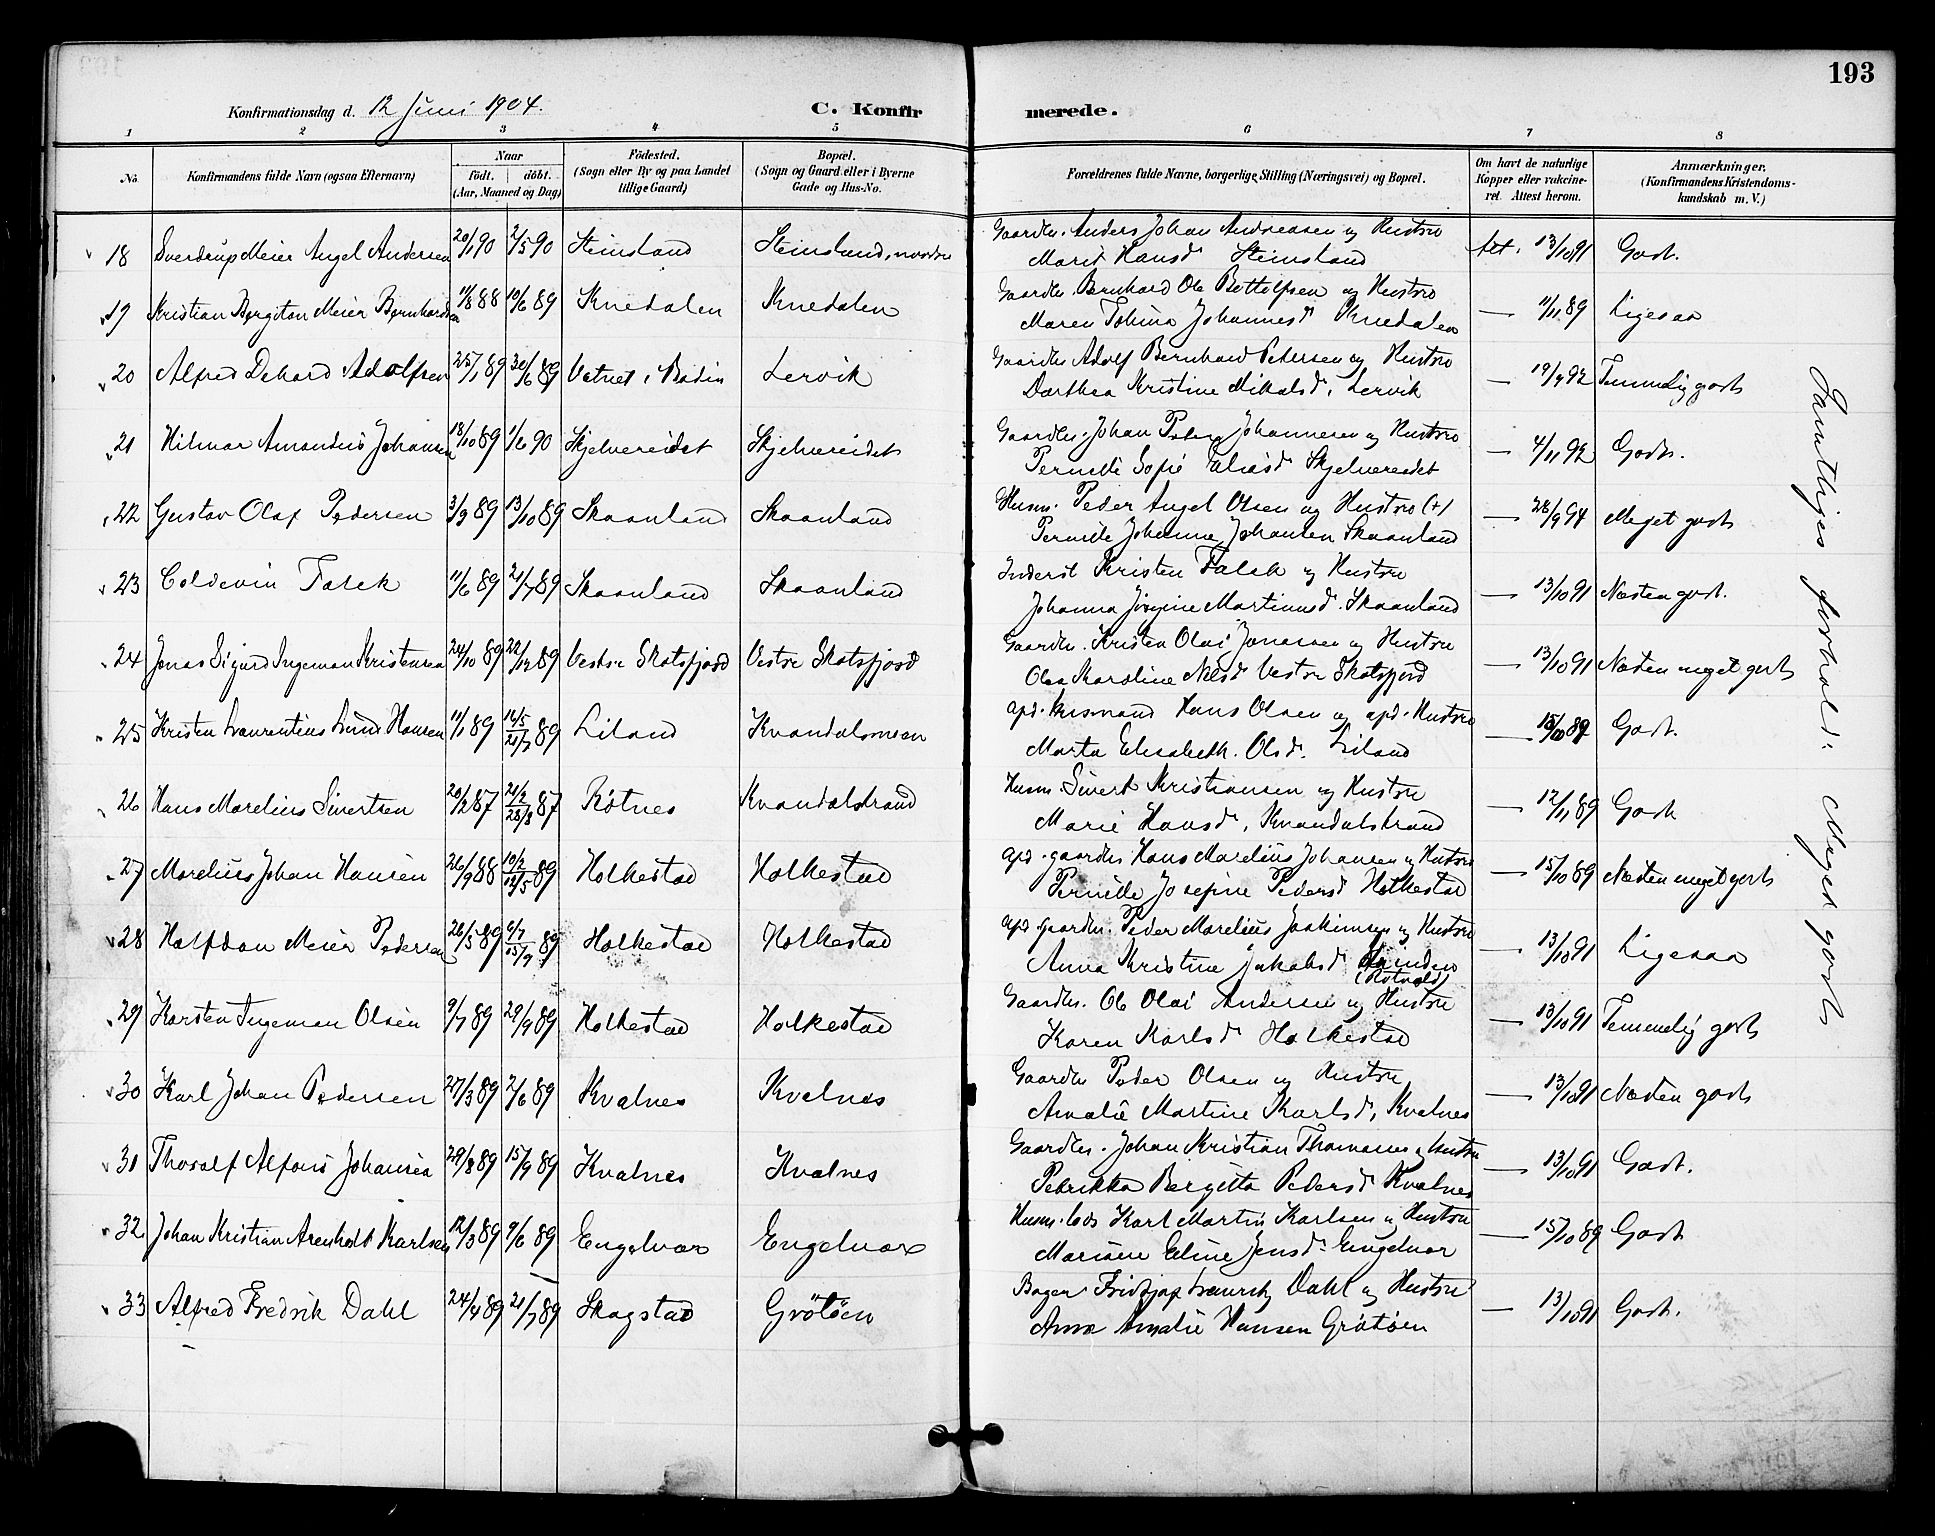 193
Konfirmationsdag d. 12 Juni 1904.
C. Konfirmerede.
1 2 3 4 5 6 7 8
No.
Konfirmandens fulde Navn (ogsaa Efternavn)
Naar
födt. döbt.
(Aar, Maaned og Dag)
Födested.
(Sogn eller By og paa Landet
tillige Gaard)
Bopæl.
(Sogn og Gaard eller i Byerne
Gade og Hus-No.
Forældrenes fulde Navne, borgerlige Stilling (Næringsvei) og Bopæl.
Om havt de naturlige
Kopper eller vakcine-
ret. Attest herom.
Anmærkninger,
(Konfirmandens Kristendoms-
kundskab m. V.)
18 Sverdrup Meier Angel Andersen 20/1 90 2/5 90 Steinsland Steinsland, nordre
Gaardbr. Anders Johan Andreasen og Hustro
Marit Hansd Steinsland
Att. 13/10 91 Godt.
19 Kristian Bergiton Meier Bernhardsen 11/8 88 10/6 89 Knedalen Knedalen
Gaardbr. Bernhard Ole Bottolfsen og Hustro
Maren Tobina Johannesd Knedalen
— 11/11 89 Ligesaa
20 Alfred Dehard Adolfsen 25/1 89 30/6 89 Vatnet i Bodin Lervik
Gaardbr Adolf Bernhard Petersen og Hustro
Dorthea Kristine Mikalsd, Lervik
— 19/9 92 Temmelig godt
21 Hilmar Amandus Johansen 18/10 89 1/6 90 Skjelvereidet Skjelvereidet
Gaardbr. Johan Peter Johannesen og Hustro
Pernille Sofie Eliasd Skjelvereidet
— 4/11 92 Godt.
22 Gustav Olaf Pedersen 3/9 89 13/10 89 Skaanland Skaanland
Husm. Peder Angel Olsen og Hustro (+)
Pernille Johanna Johansen Skaanland
— 28/9 94 Meget godt
23 Coldevin Falck 11/6 89 21/7 89 Skaanland Skaanland
Inderst Kristen Falck og Hustro
Johanna Jørgine Martinusd. Skaanland
— 13/10 91 Næsten godt.
24 Jonas Sigurd Ingeman Kristensen 24/10 89 22/12 89 Vestre Skotsfjord Vestre Skotsfjord
Gaardbr. Kristen Olai Jonassen og Hustro
Olea Karoline Nelsd Vestre Skotsfjord
— 13/10 91 Næsten meget godt
25 Kristen Laurentius Lund Hansen 11/1 89 16/5 21/7 89 Liland Kvandalsmoen
apd. husmand Hans Olsen og apd. Hustro
Marta Elisabeth. Olsd. Liland
— Godt.
26 Hans Marelius Sivertsen 20/2 87 21/2 28/8 87 Røtnes Kvandalstrand
Husm. Sivert Kristiansen og Hustro
Marie Hansd, Kvandalstrand
— 12/11 89 Godt
27 Marelius Johan Hansen 26/9 88 10/2 12/5 89 Holkestad Holkestad
apd. gaardbr Hans Marelius Johansen og Hustro
Pernille Josefine Pedersd Holkestad
— 15/10 89 Næsten meget godt
28 Halfdan Meier Pedersen 26/5 89 6/7 15/9 89 Holkestad Holkestad
apd. gaardbr. Peder Marelius Joakimsen og Hustro
Anna Kristine Jakobsd
— 13/10 91 Ligesaa
29 Karsten Ingeman Olsen 9/7 89 29/9 89 Holkestad Holkestad
Gaardbr. Ole Olai Andersen og Hustro
Karen Karlsd Holkestad
— 13/10 91 Temmelig godt
30 Karl Johan Pedersen 27/3 89 2/6 89 Kvalnes Kvalnes
Gaardbr Peder Olsen og Hustro
Amalie Martine Karlsd, Kvalnes
— 13/10 91 Næsten godt
31 Thoralf Alfons Johansen 29/8 89 15/9 89 Kvalnes Kvalnes
Gaardbr. Johan Kristian Thomassen og Hustro
Petrikka Bergitta Pedersd Kvalnes
— 13/10 91 Godt.
32 Johan Kristian Arenholt Karlsen 12/3 89 9/6 89 Engelvær Engelvær
Husm. Karl Martin Karlsen og Hustro
Mariane Eline Jensd. Engelvær
— 15/10 89 Godt
33 Alfred Fredrik Dahl 24/4 89 21/7 89 Skagstad Grötöen
Bager Fridtjof Dahl og Hustro
Anna Amalie Hansen Grötöen
— 13/10 91 Godt.
Samtliges forhold: Meget godt